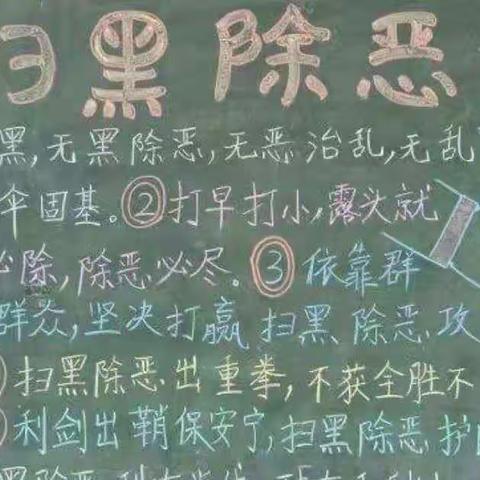 扫黑除恶
黑,无黑除恶,无恶治乱,无乱
伞固基。②打早打小,露头就
必除,除恶必尽。③依靠群
群众,坚决打赢 扫黑除恶攻
扫黑除恶出重拳,不获全胜不
利剑出鞘保安宁,扫黑除恶护